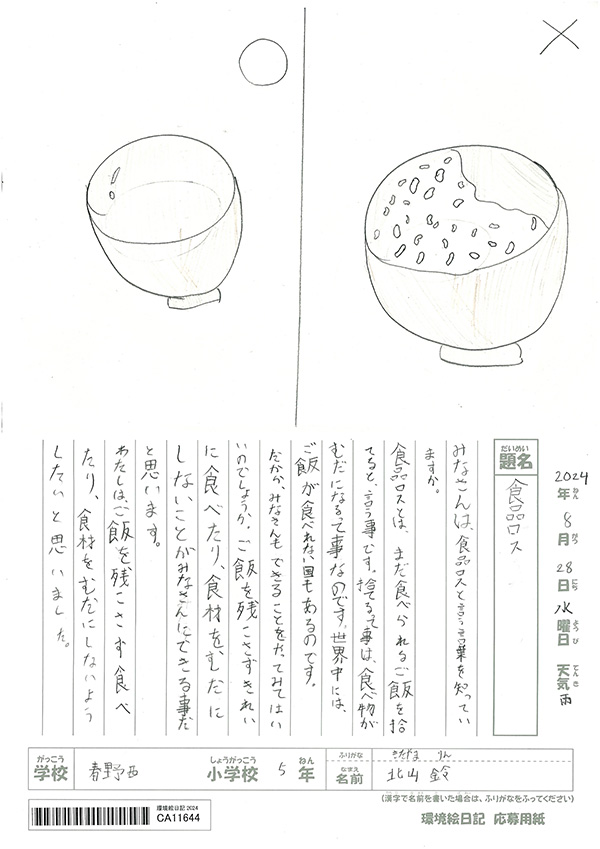 2024年8月28日水曜日 天気雨
ねん がつ にち ようび てんき
だいめい
題名 食品ロス
みなさんは、食品ロスと言う言葉を知ってい
ますか。
食品ロスとは、まだ食べられるご飯を捨
てると、言う事です。捨てるって事は、食べ物が
むだになるって事なのです。世界中には、
ご飯が食べれない国もあるのです。
だから、みなさんもできることをやってみてはい
いのでしょうか。ご飯を残こさずきれい
に食べたり、食材をむだに
しないことがみなさんにできる事だ
と思います。
わたしは、ご飯を残こさず食べ
たり、食材をむだにしないよう
したいと思いました。
がっこう しょうがっこう ねん ふりがな きたやま りん
学校 春野西 小学校 5年 なまえ 名前 北山 鈴
(漢字で名前を書いた場合は、ふりがなをふってください)
環境絵日記2024
CA11644
環境絵日記 応募用紙